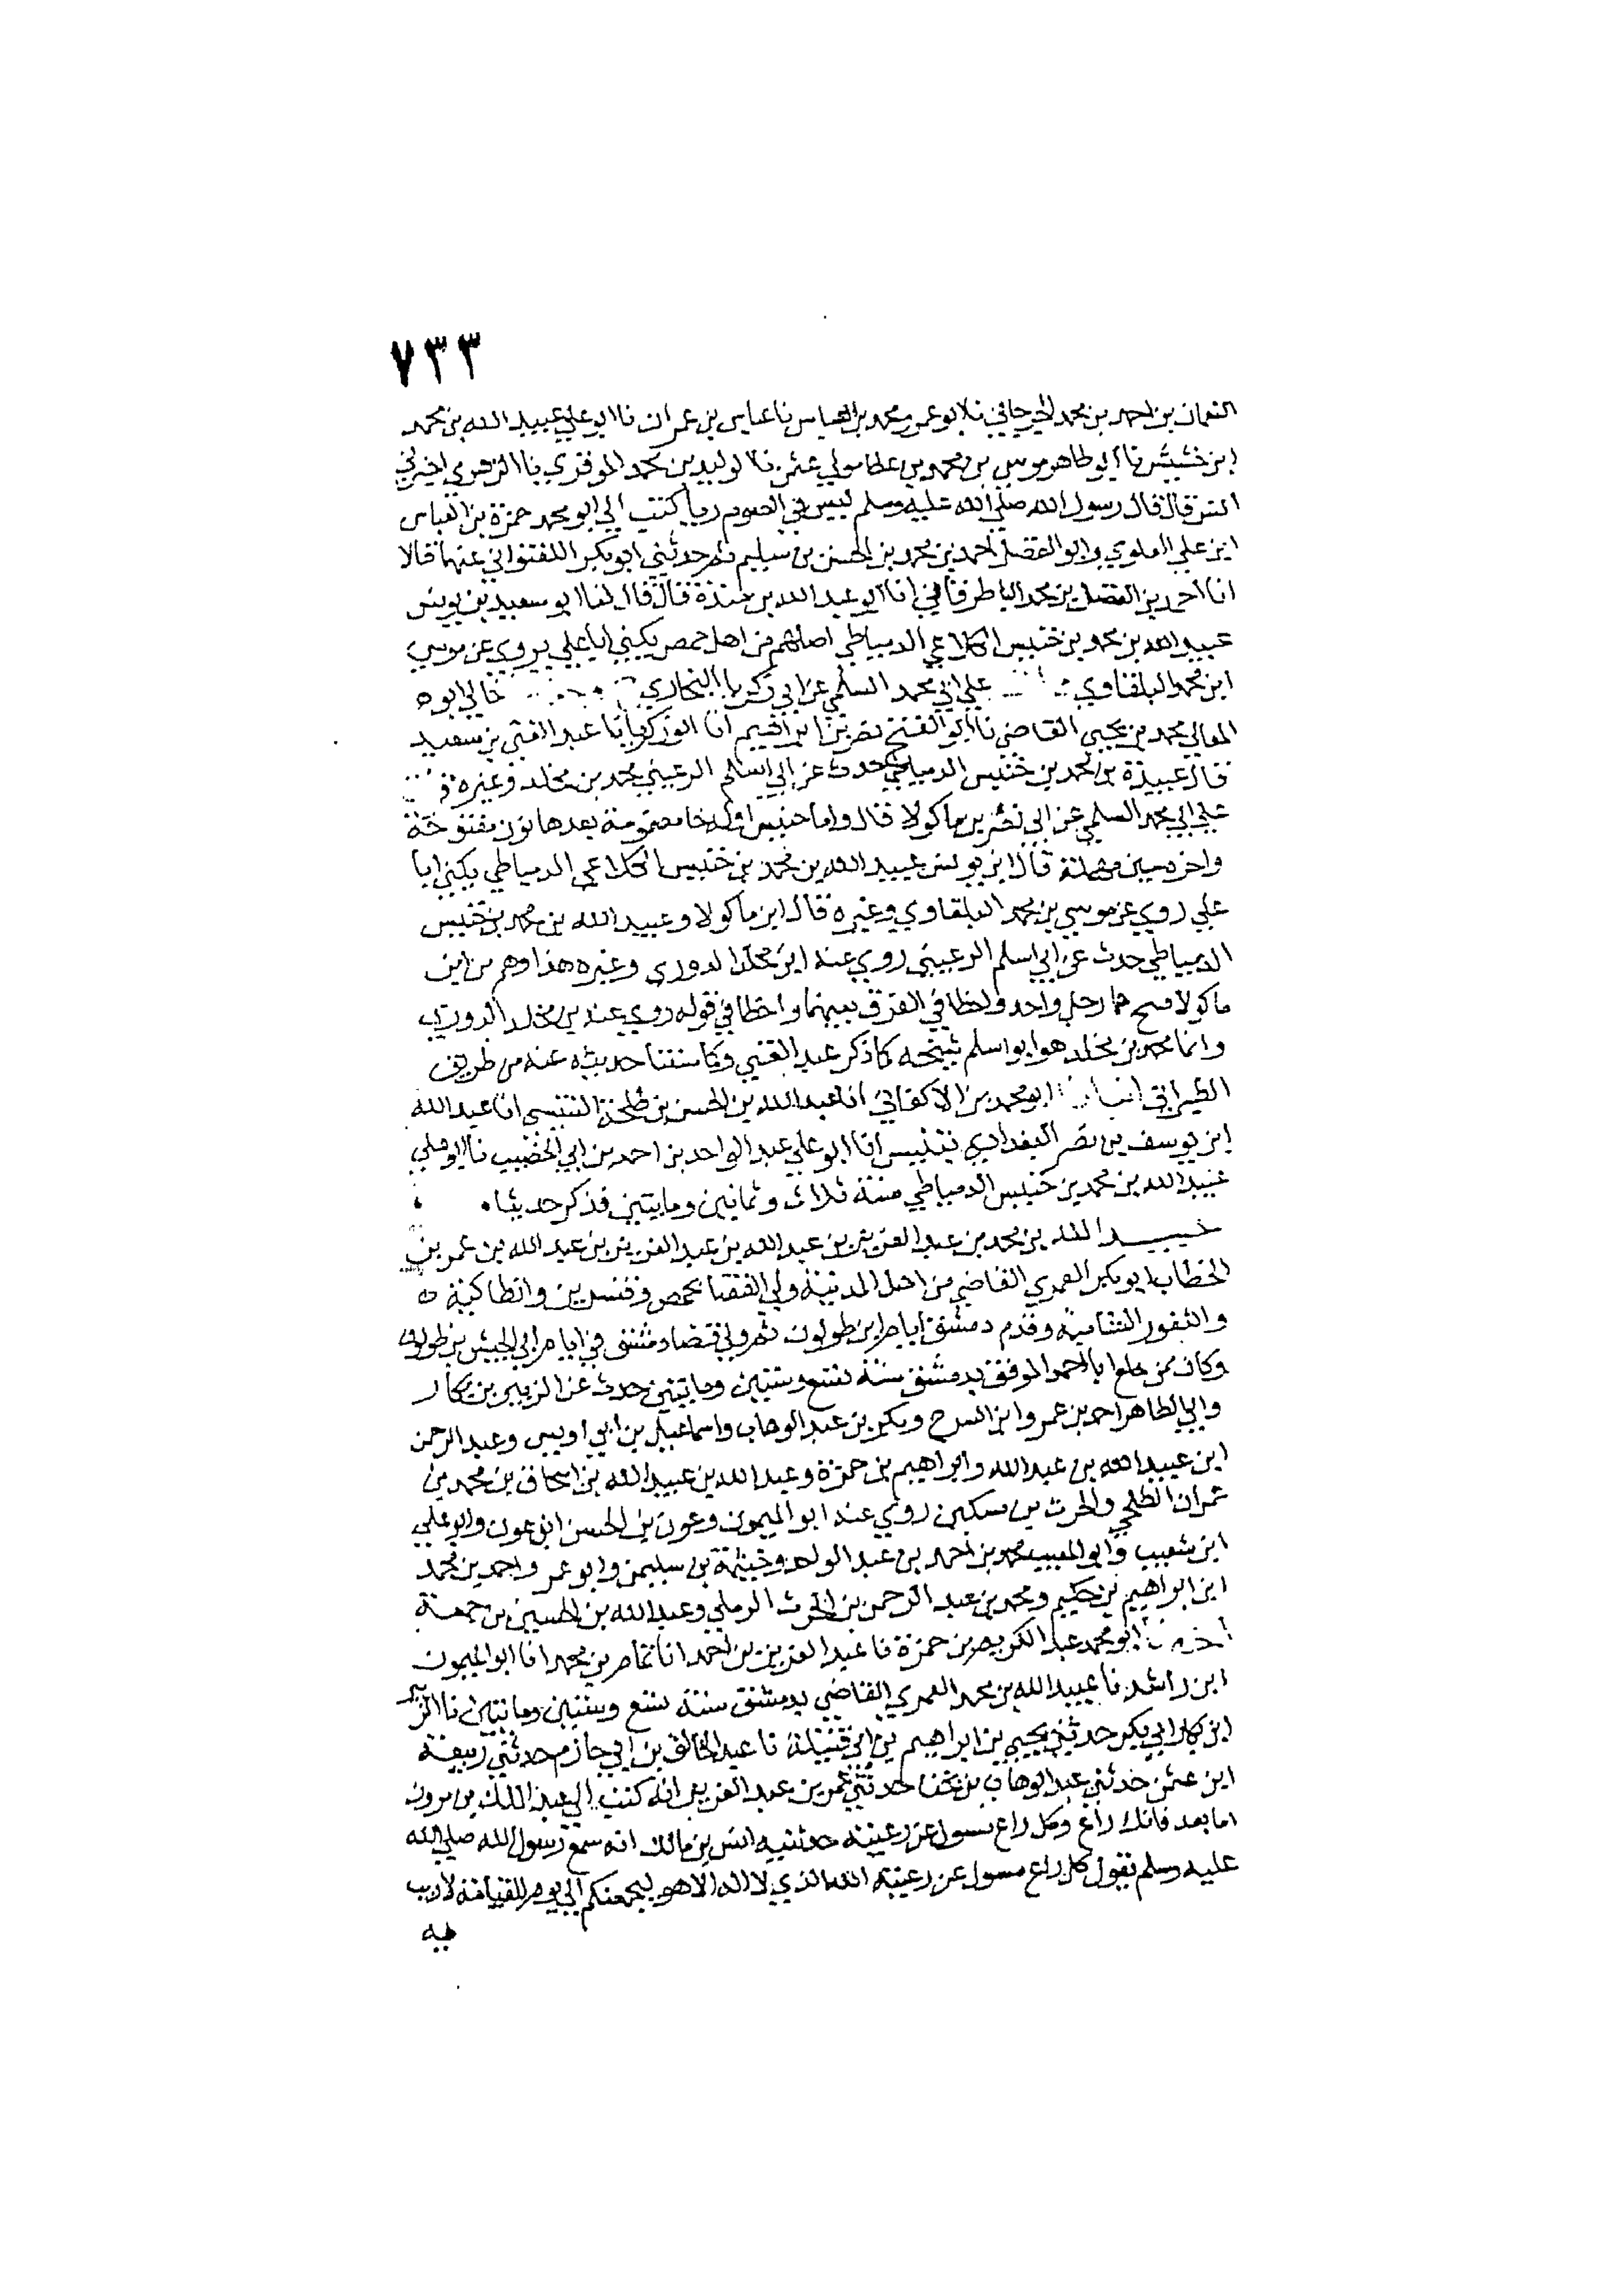 ٧٣٣
النعمان بن احمد بن محمد الجرجاني نا ابو عمر محمد بن العباس نا عباس بن عمران نا ابو علي عبيد الله بن محمد
ابن خنيس نا ابو طاهر موسى بن محمد بن عطا مولي عثمن نا الوليد بن محمد الموقري نا الزهري اخبرني
انس قال قال رسول الله صلي الله عليه وسلم ليس في الصوم ريا كتب الي ابو محمد حمزة بن العباس
ابن علي العلوي وابو الفضل احمد بن محمد بن الحسن بن سليم ثم حدثني ابو بكر اللفتواني عنهما قالا
انا احمد بن الفضل بن محمد الباطرقاني انا ابو عبد الله بن مندة قال قال لنا ابو سعيد بن يونس
عبيد الله بن محمد بن خنيس الكلاعي الدمياطي اصلهم من اهل حمص يكني ابا علي يروي عن موسي
ابن محمد البلقاوي علي ابي محمد السلمي عن ابي زكريا البخاري خالي ابو
المعالي محمد بن يحيي القاضي نا ابو الفتح نصر بن ابراهيم انا ابو زكريا انا عبد الغني بن سعيد
قال عبيدة بن محمد بن خنيس الدمياطي حدث عن ابي اسلم الرعيني محمد بن مخلد وغيره
علي ابي محمد السلمي عن ابي نصر بن ماكولا قال واما خنيس اوله خا مضمومة بعدها نون مفتوحة
واخره سين مهملة قال ابن يونس عبيد الله بن محمد بن خنيس الكلاعي الدمياطي يكني ابا
علي روي عن موسي بن محمد البلقاوي وغيره قال ابن ماكولا وعبيد الله بن محمد بن خنيس
الدمياطي حدث عن ابي اسلم الرعيني روي عنه ابن مخلد الدوري وغيره هذا وهم من ابن
ماكولا هما رجل واحد واخطا في الفرق بينهما واخطا في قوله روي عنه بن مخلد الدوري
وانما محمد بن مخلد هو ابو اسلم شيخه كما ذكر عبد الغني وكما سقنا حديثه عنه من طريق
الطبراني ابو محمد بن الاكفاني انا عبد الله بن الحسن بن طلحة التنيسي انا عبد الله
ابن يوسف بن نصر البغدادي بتنيس انا ابو علي عبد الواحد بن احمد بن ابي الخصيب نا ابو علي
عبيد الله بن محمد بن خنيس الدمياطي سنة ثلاث وثمانين ومايتين فذكر حديثا
عبيد الله بن محمد بن عبد العزيز بن عبد الله بن عبد العزيز بن عبد الله بن عمر بن
الخطاب ابو بكر العمري القاضي من اهل المدينة ولي القضا بحمص وقنسرين وانطاكية
والثغور الشامية وقدم دمشق ايام ابن طولون ثم ولي قضا دمشق في ايام ابي الجيش بن طولون
وكان ممن خلع ابا احمد الموفق بدمشق سنة تسع وستين ومايتين حدث عن الزبير بن بكار
وابي الطاهر احمد بن عمرو ابن السرح وبكر بن عبد الوهاب واسماعيل بن ابي اويس وعبد الرحمن
ابن عبيد الله بن عبد الله وابراهيم بن حمزة وعبد الله بن عبيد الله بن اسحاق بن محمد بن
عمران الطلحي والحرث بن مسكين روي عنه ابو الميمون وعون بن الحسن ابن عون وابو علي
ابن شعيب وابو الطيب محمد بن احمد بن عبد الواحد وخيثمة بن سليمن وابو عمر واحمد بن محمد
ابن ابراهيم بن حكيم ومحمد بن عبد الرحمن بن الحرث الرملي وعبد الله بن الحسين بن جمعة
ابو محمد عبد الكريم بن حمزة نا عبد العزيز بن احمد انا تمام بن محمد انا ابو الميمون
ابن راشد نا عبيد الله بن محمد العمري القاضي بدمشق سنة تسع وستين ومايتين نا الزبير
ابن بكار ابي بكر حدثني يحيي بن ابراهيم بن ابي قتيلة نا عبد الخالق بن ابي حازم حدثني ربيعة
ابن عثمن حدثني عبد الوهاب بن بخت حدثني عمر بن عبد العزيز انه كتب الي عبد الملك بن مرون
اما بعد فانك راع وكل راع مسول عن رعيته حدثنيه انس بن مالك انه سمع رسول الله صلي الله
عليه وسلم يقول كل راع مسول عن رعيته الله الذي لا اله الا هو ليجمعنكم الي يوم القيامة لا ريب
فيه